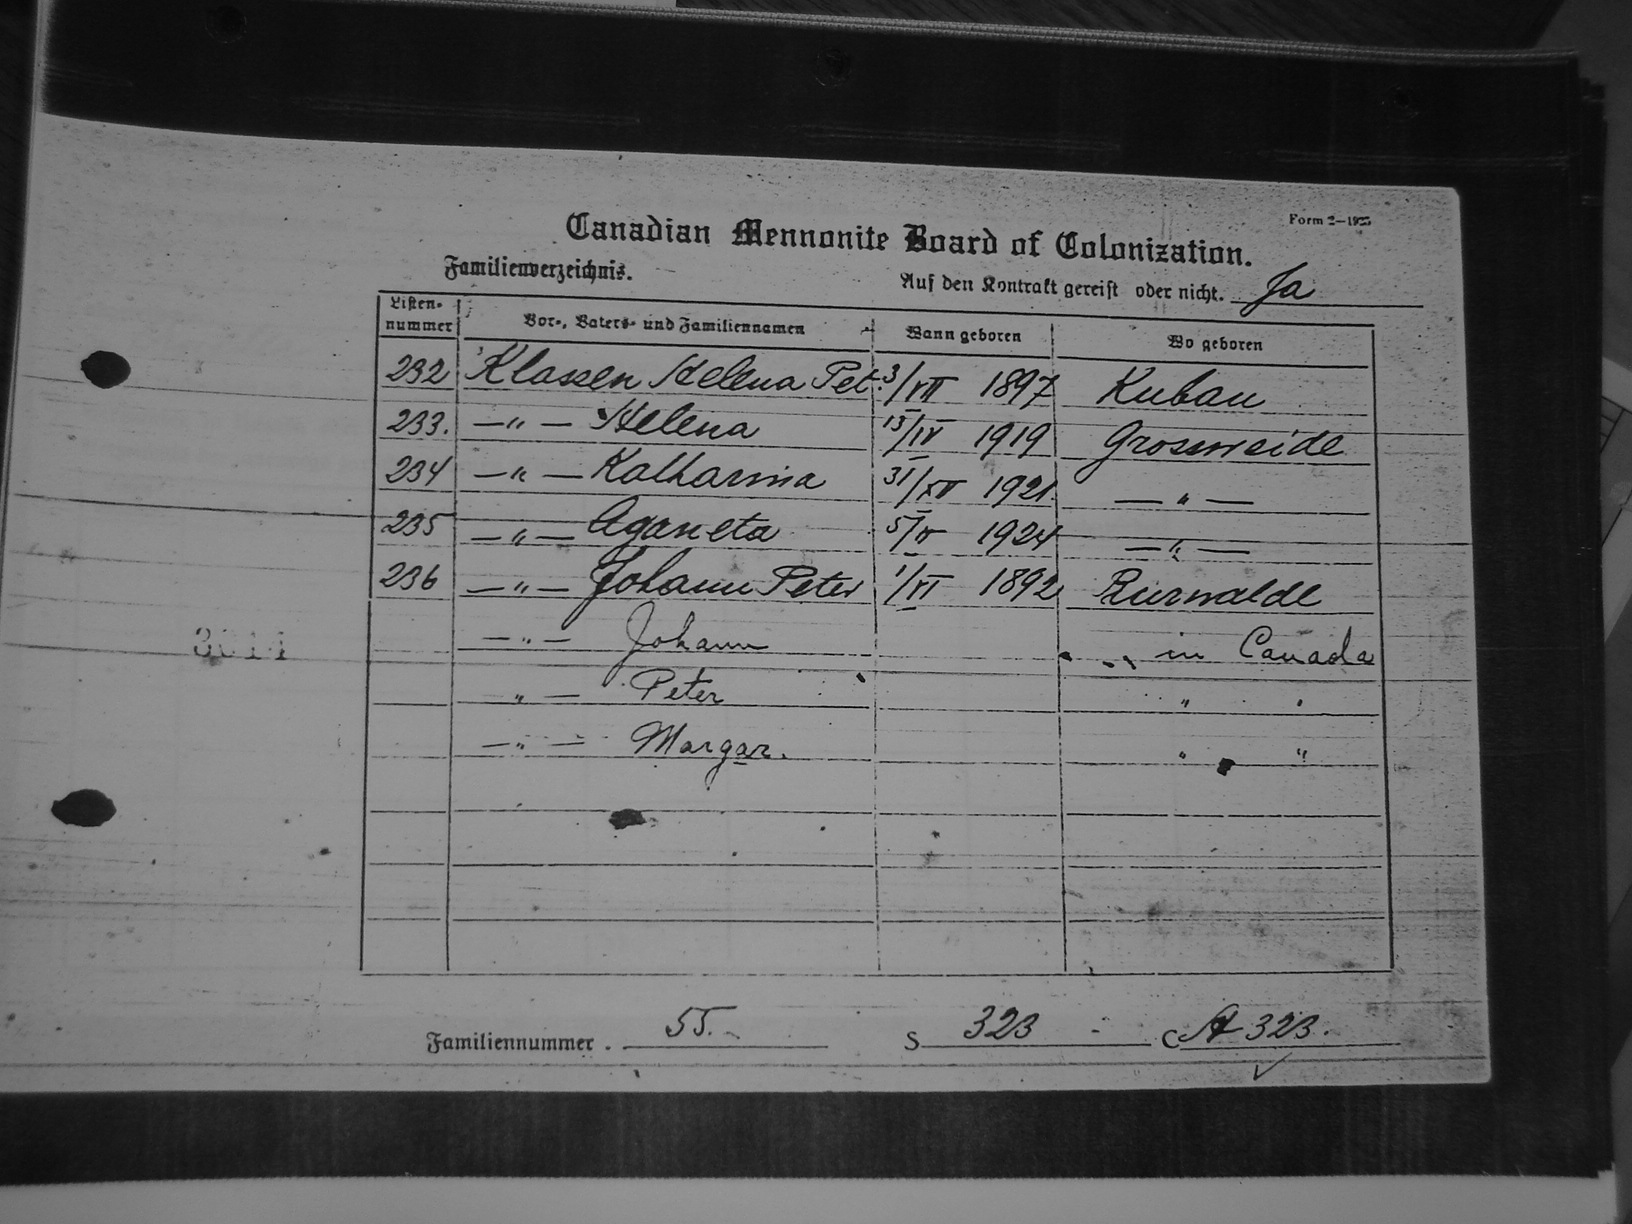 Form 2—1925
Canadian Mennonite Board of Colonization.
Familienverzeichnis.
Auf den Kontrakt gereist oder nicht. Ja
Listen-nummer Vor-, Vaters- und Familiennamen Wann geboren Wo geboren
232 Klassen Helena Pet. 3/VII 1897 Kuban
233. —"— Helena 13/IV 1919 Grossweide
234 —"— Katharina 31/XII 1921 —"—
235 —"— Aganeta 5/V 1924 —"—
236 —"— Johann Peter 1/VI 1892 Rurwalde
—"— Johann in Canada
3014
"— Peter " "
—"— Margar. " "
Familiennummer . 55. S 323 C A 323.